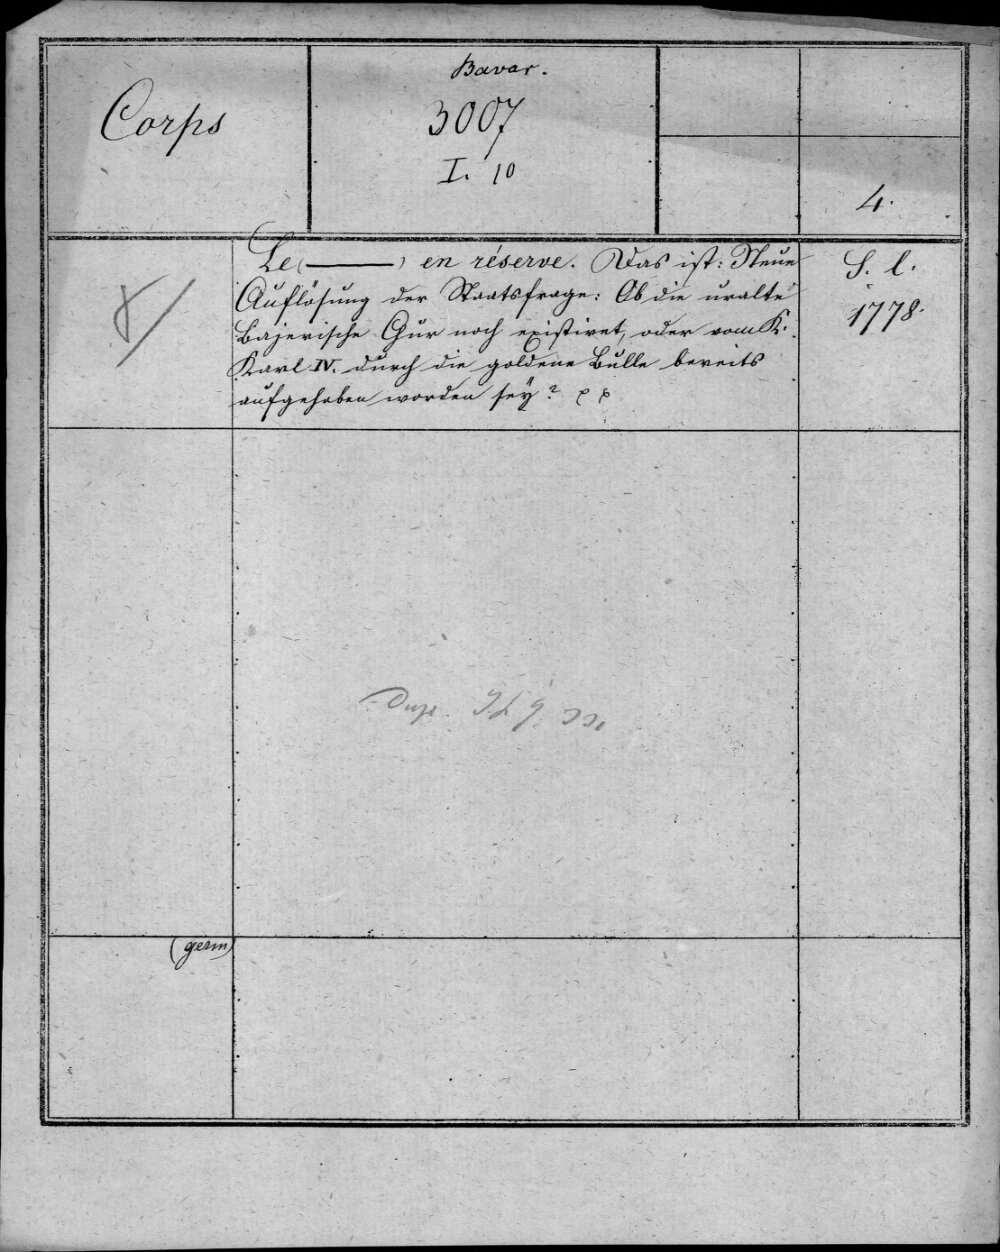 Corps
Bavar.
3007
I. 10
4.
Le (———) en réserve. Das ist: Neue
Auflösung der Staatsfrage: Ob die uralte
Bajerische Cur noch existiret, oder vom K.
Karl IV. durch die goldene Bulle bereits
aufgehoben worden seÿ?
S. l.
1778.
(germ)